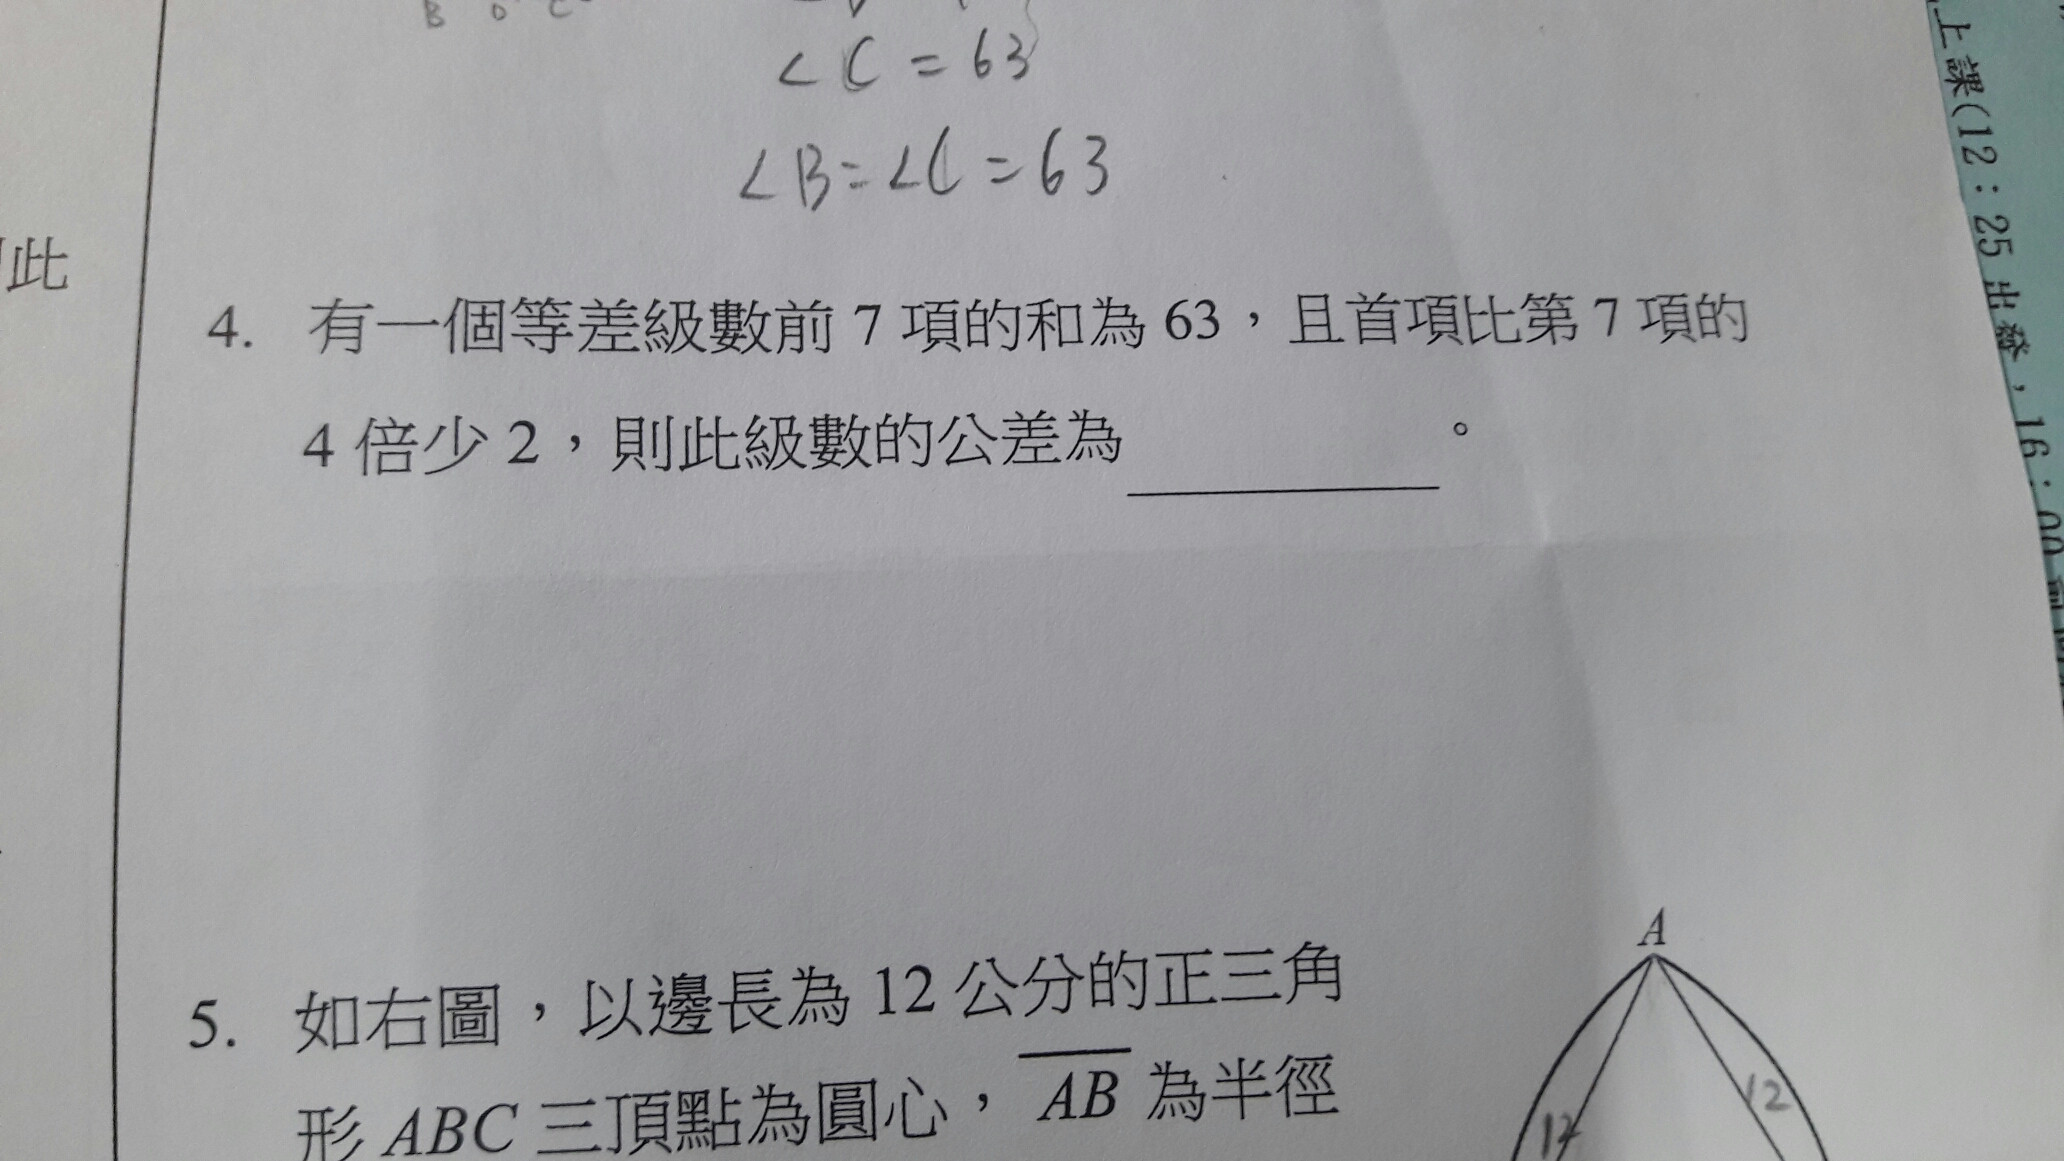 B D C
∠C = 63
∠B = ∠C = 63
此
4. 有一個等差級數前 7 項的和為 63，且首項比第 7 項的
4 倍少 2，則此級數的公差為________。
5. 如右圖，以邊長為 12 公分的正三角
形 ABC 三頂點為圓心，AB 為半徑
A
12
12
上課(12：25 出發，16：00